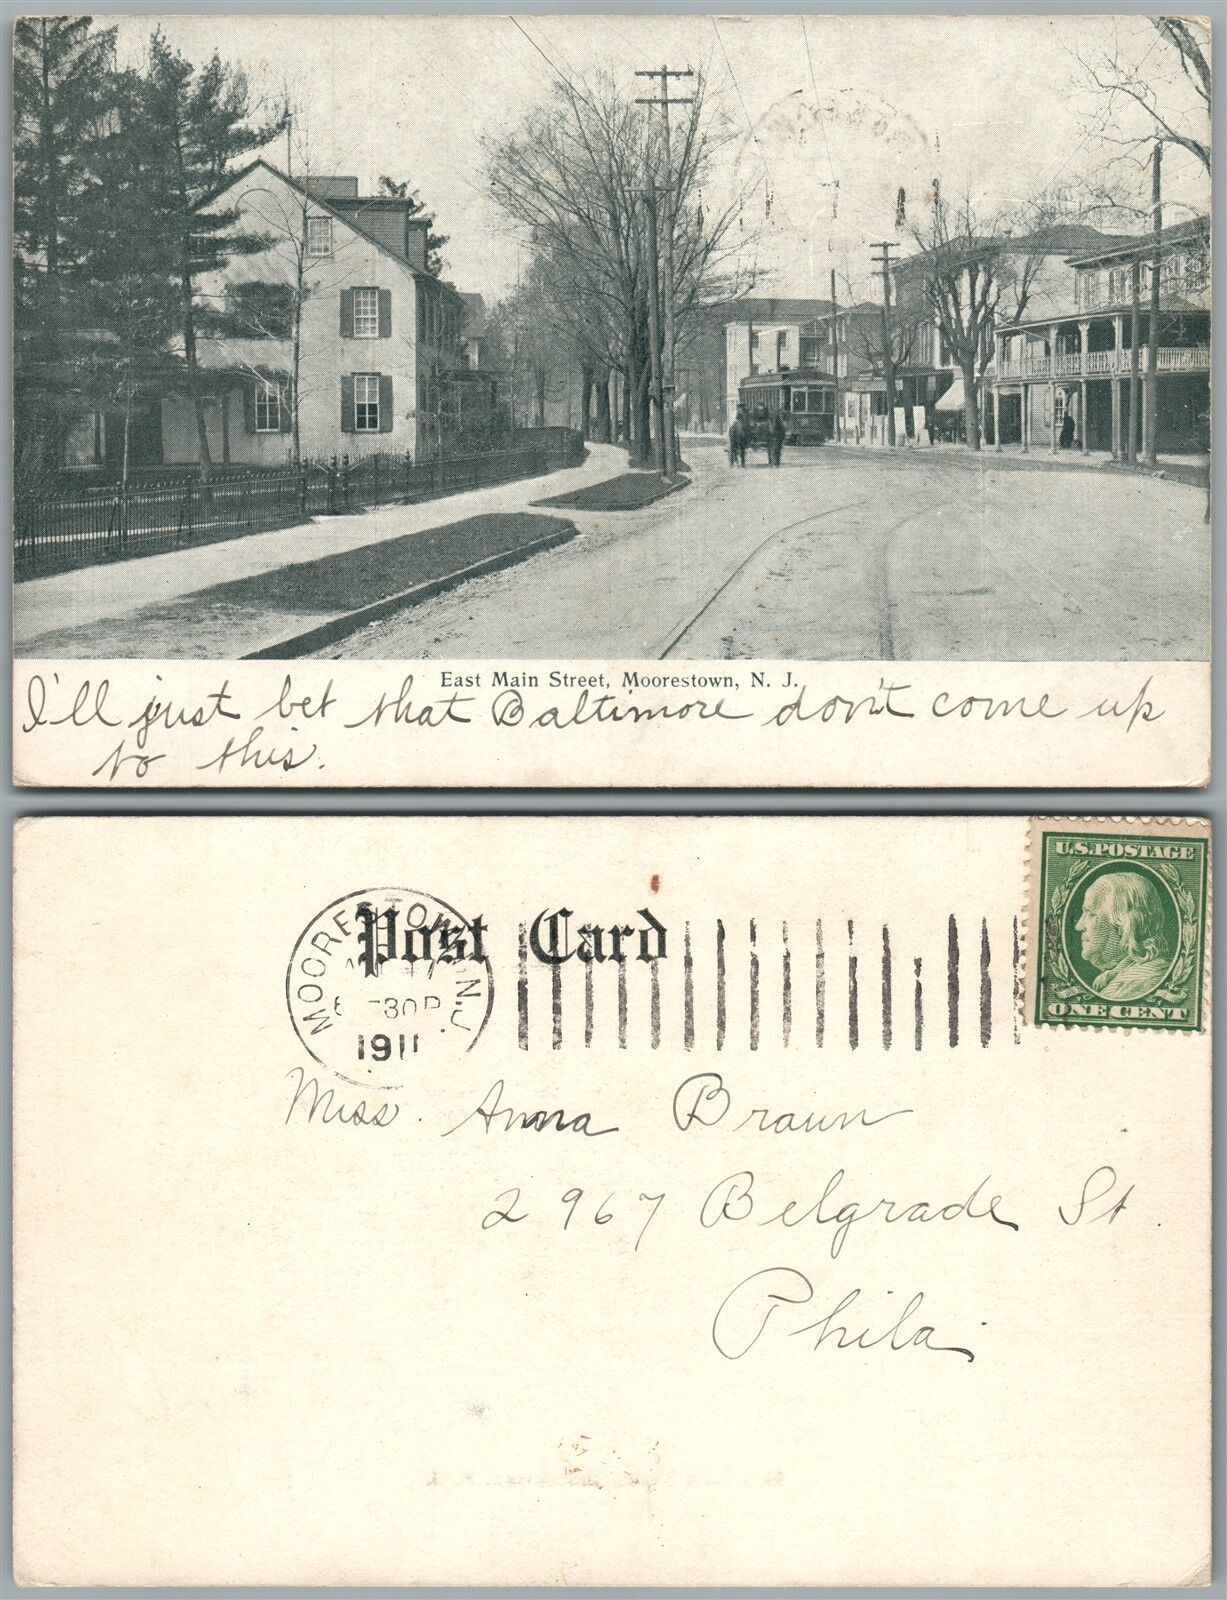 East Main Street, Moorestown, N. J.
I'll just bet that Baltimore don't come up
to this.
Post Card
MOORESTOWN, N.J.
1911
U.S. POSTAGE
ONE CENT
Miss. Anna Braun
2967 Belgrade St.
Phila.